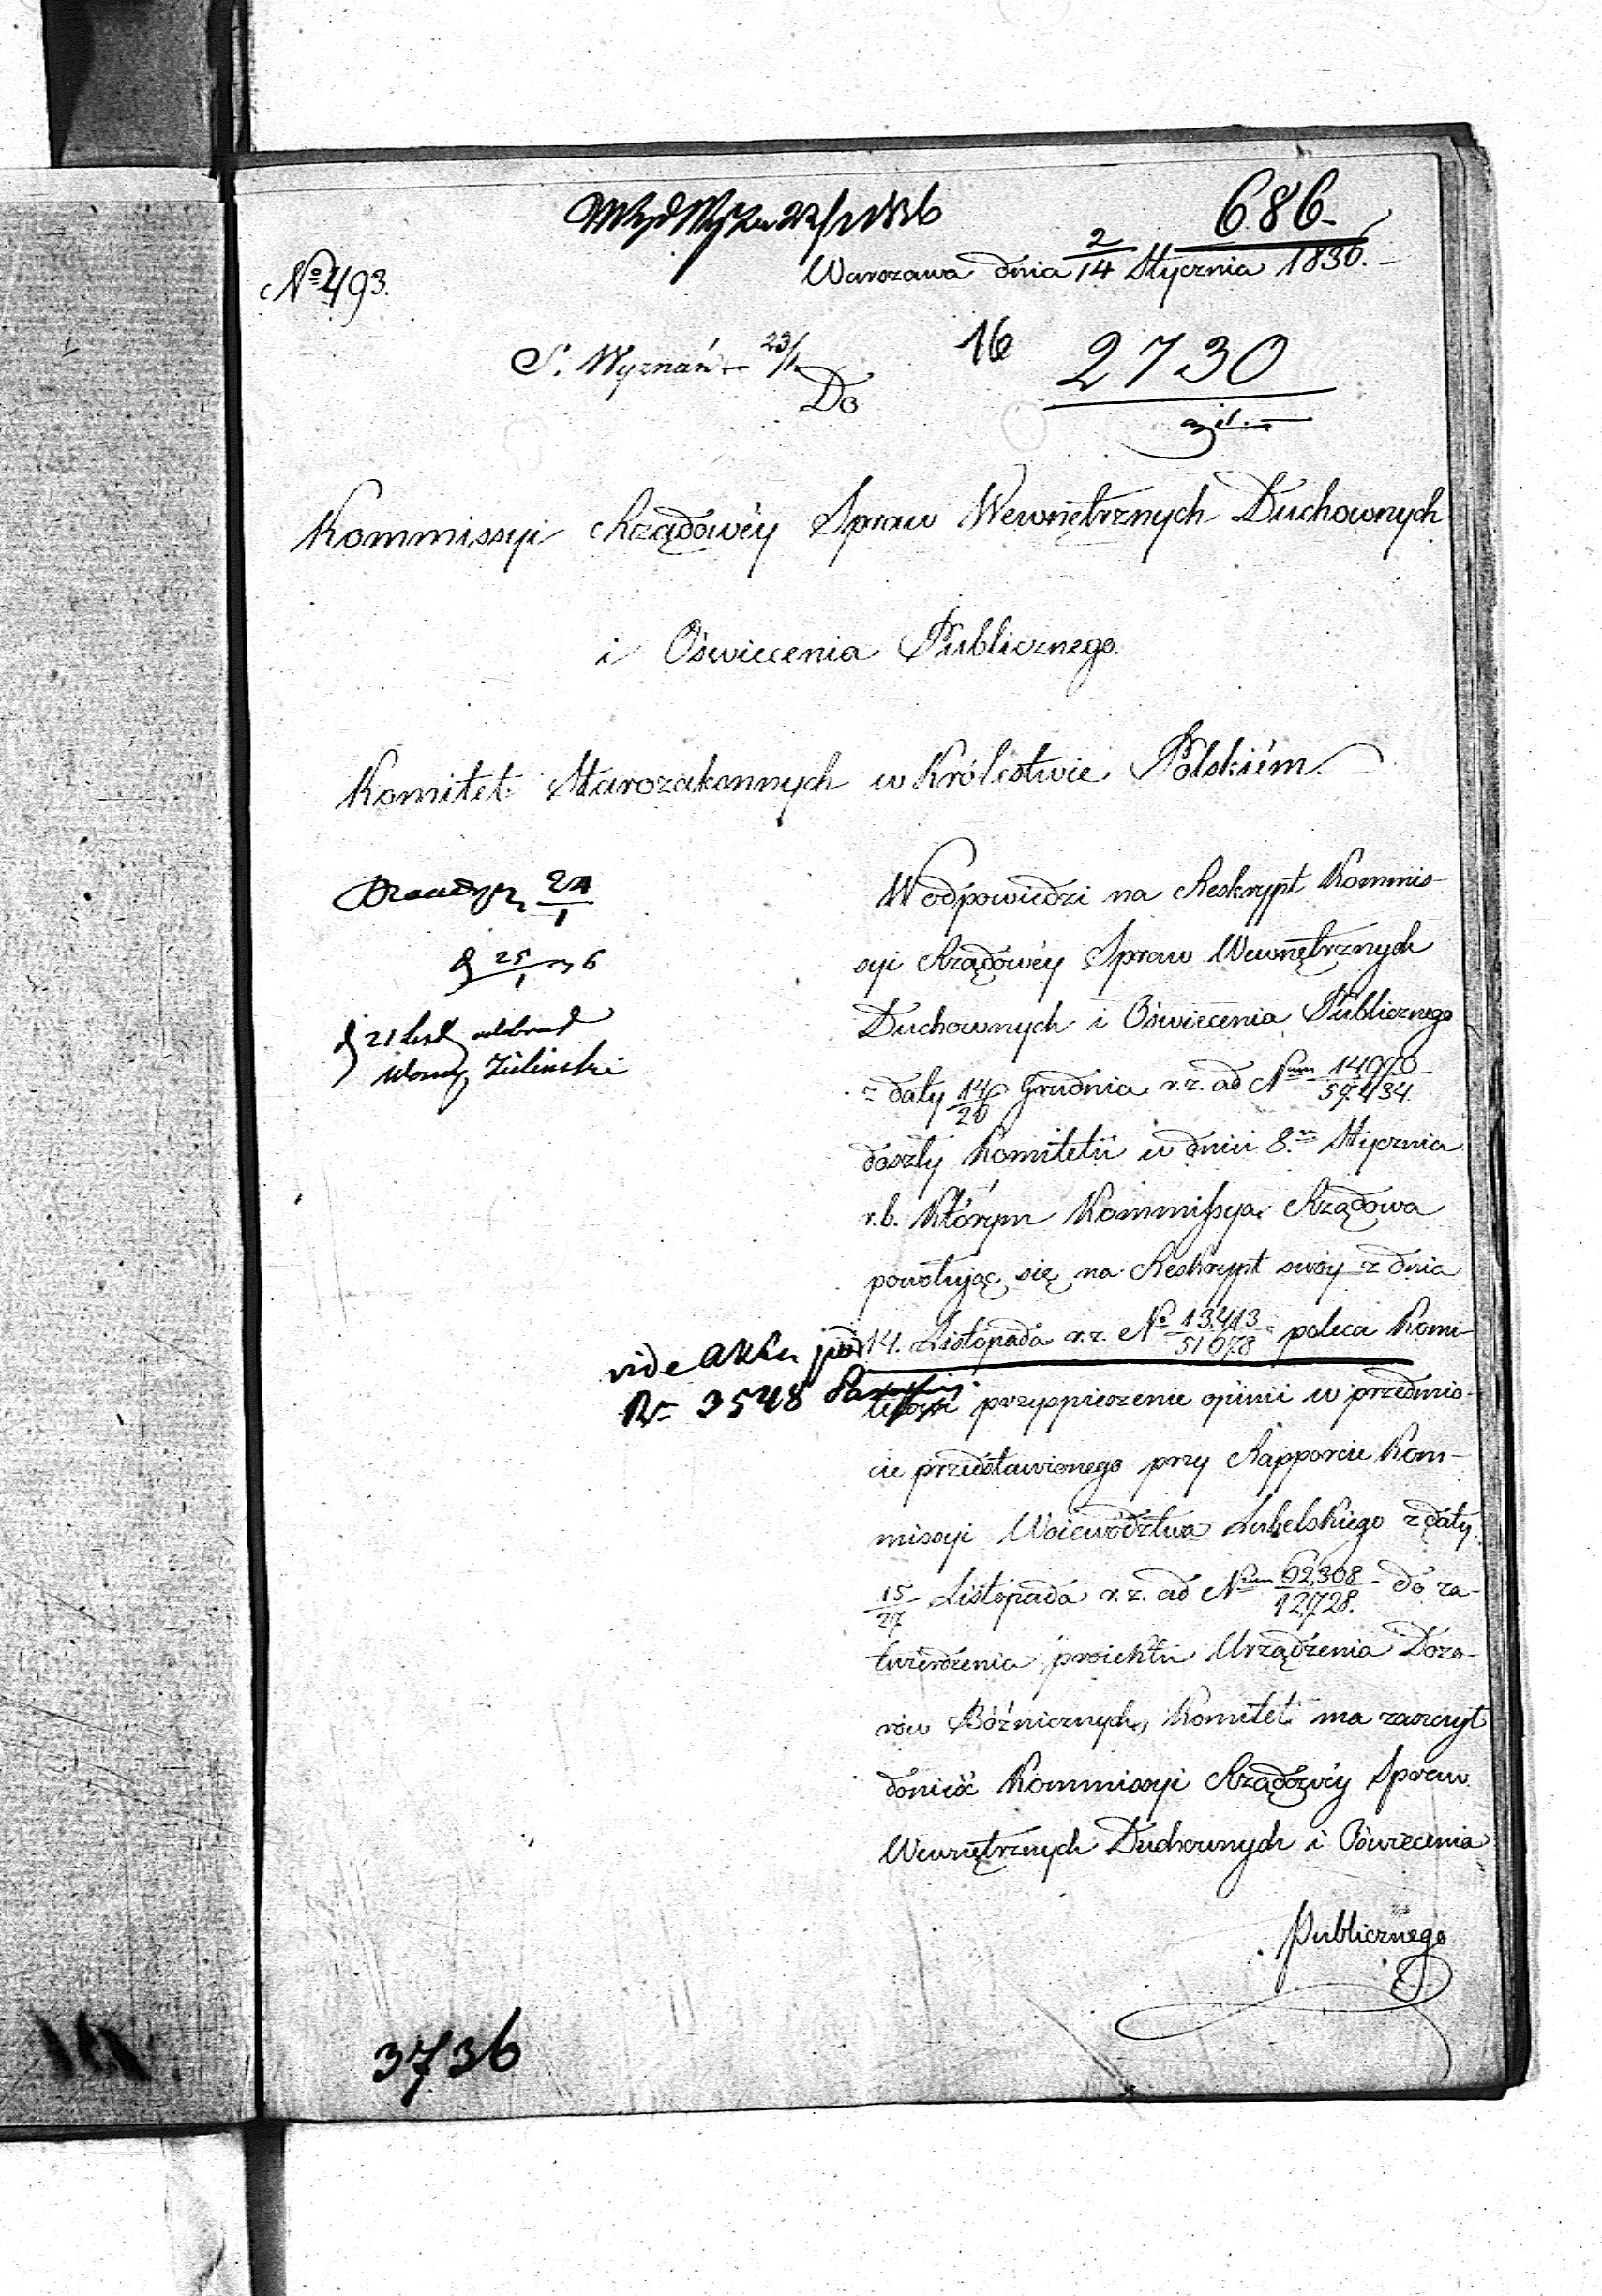 686.
Warszawa dnia 2/14 Stycznia 1836.
№ 493.
S. Wyznań 23/1
16
2730
Do
Kommissyi Rządowéy Spraw Wewnętrznych Duchownych
i Oświecenia Publicznego.
Komitet Starozakonnych w Królestwie Polskiém.
24/1
25/1
Zieliński
W odpowiedzi na Reskrypt Kommis-
syi Rządowéy Spraw Wewnętrznych
Duchownych i Oświecenia Publicznego
z daty Grudnia r. z. ad Num
doszły Komitetu w dniu 8. Stycznia
r. b. którym Kommissya Rządowa
powołując się na Reskrypt swóy z dnia
14. Listopada r. z. № 13.413/51078 poleca Komi-
tetowi przyspieszenie opinii w przedmio-
cie przedstawionego przy Rapporcie Kom-
missyi Woiewództwa Lubelskiego z daty
15/27 Listopada r. z. ad Num 62.308/12.728. do za-
twierdzenia proiektu Urządzenia Dozo-
rów Bóźnicznych, Komitet ma zaszczyt
donieść Kommissyi Rządowéy Spraw
Wewnętrznych Duchownych i Oświecenia
Publicznego
vide akta pod
№ 3548
3736